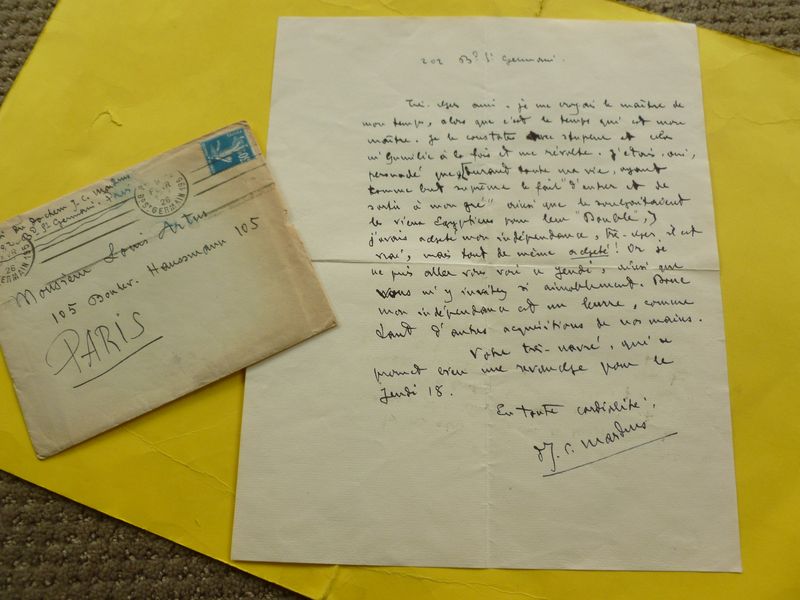 202 Bd St Germain.
Très cher ami. je me croyais le maître de
mon temps, alors que c'est le temps qui est mon
maître. Je le constate avec stupeur et cela
m'humilie à la fois et me révolte. J'étais, ami,
persuadé que, durant toute ma vie, ayant
comme but suprême le fait "d'entrer et de
sortir à mon gré" ainsi que le souhaitaient
les vieux Égyptiens pour leur "Double",
j'avais acheté mon indépendance, très-cher, il est
vrai, mais tout de même acheté! Or je
ne puis aller vous voir ce jeudi, ainsi que
vous m'y invitez si aimablement. Donc
mon indépendance est un leurre, comme
tant d'autres acquisitions de nos mains.
Votre très-navré, qui se
promet bien une revanche pour le
Jeudi 18.
En toute cordialité,
Dr J. C. Mardrus
du Docteur J. C. Mardrus
Bd St Germain - Paris
Bd St GERMAIN
26
Monsieur Louis Artus
105 Boulev. Haussmann 105
PARIS